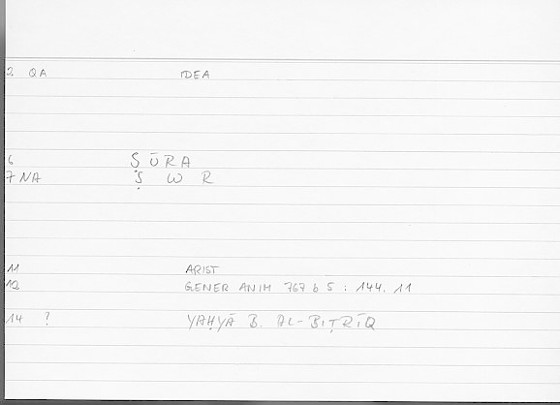 2 QA IDEA
6 ṢŪRA
7 NA Ṣ W R
11 ARIST
12 GENER ANIM 767 b 5 : 144. 11
14 ? YAḤYĀ B. AL-BIṬRĪQ